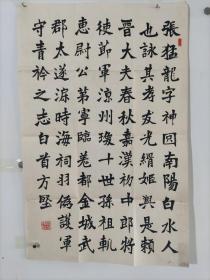 張猛龍字神囧南陽白水人
也詠其孝友光緝姬興是賴
晉大夫春秋嘉漢初中郎將
徒郭軍涼州瓊十世孫祖軌
惠尉公第寧臨羌都金城武
郡太遂深時海祠羽偽護軍
守青衿之志白首方堅